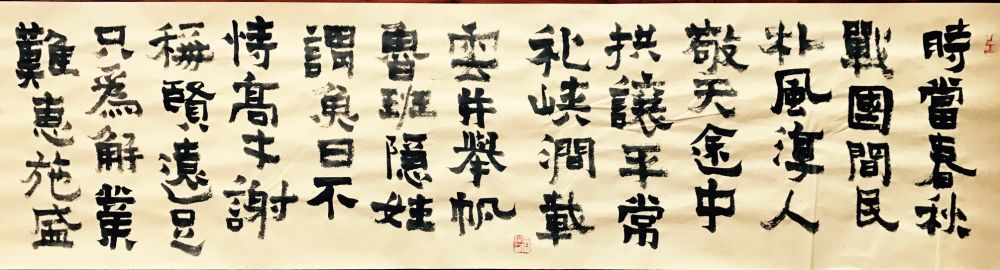 時當春秋
戰國間民
朴風淳人
敬天途中
拱讓平常
礼峽澗載
雲并舉帆
魯班隱姓
謂曰不
恃高才謝
稱賢遠
只為解業
難惠施盛